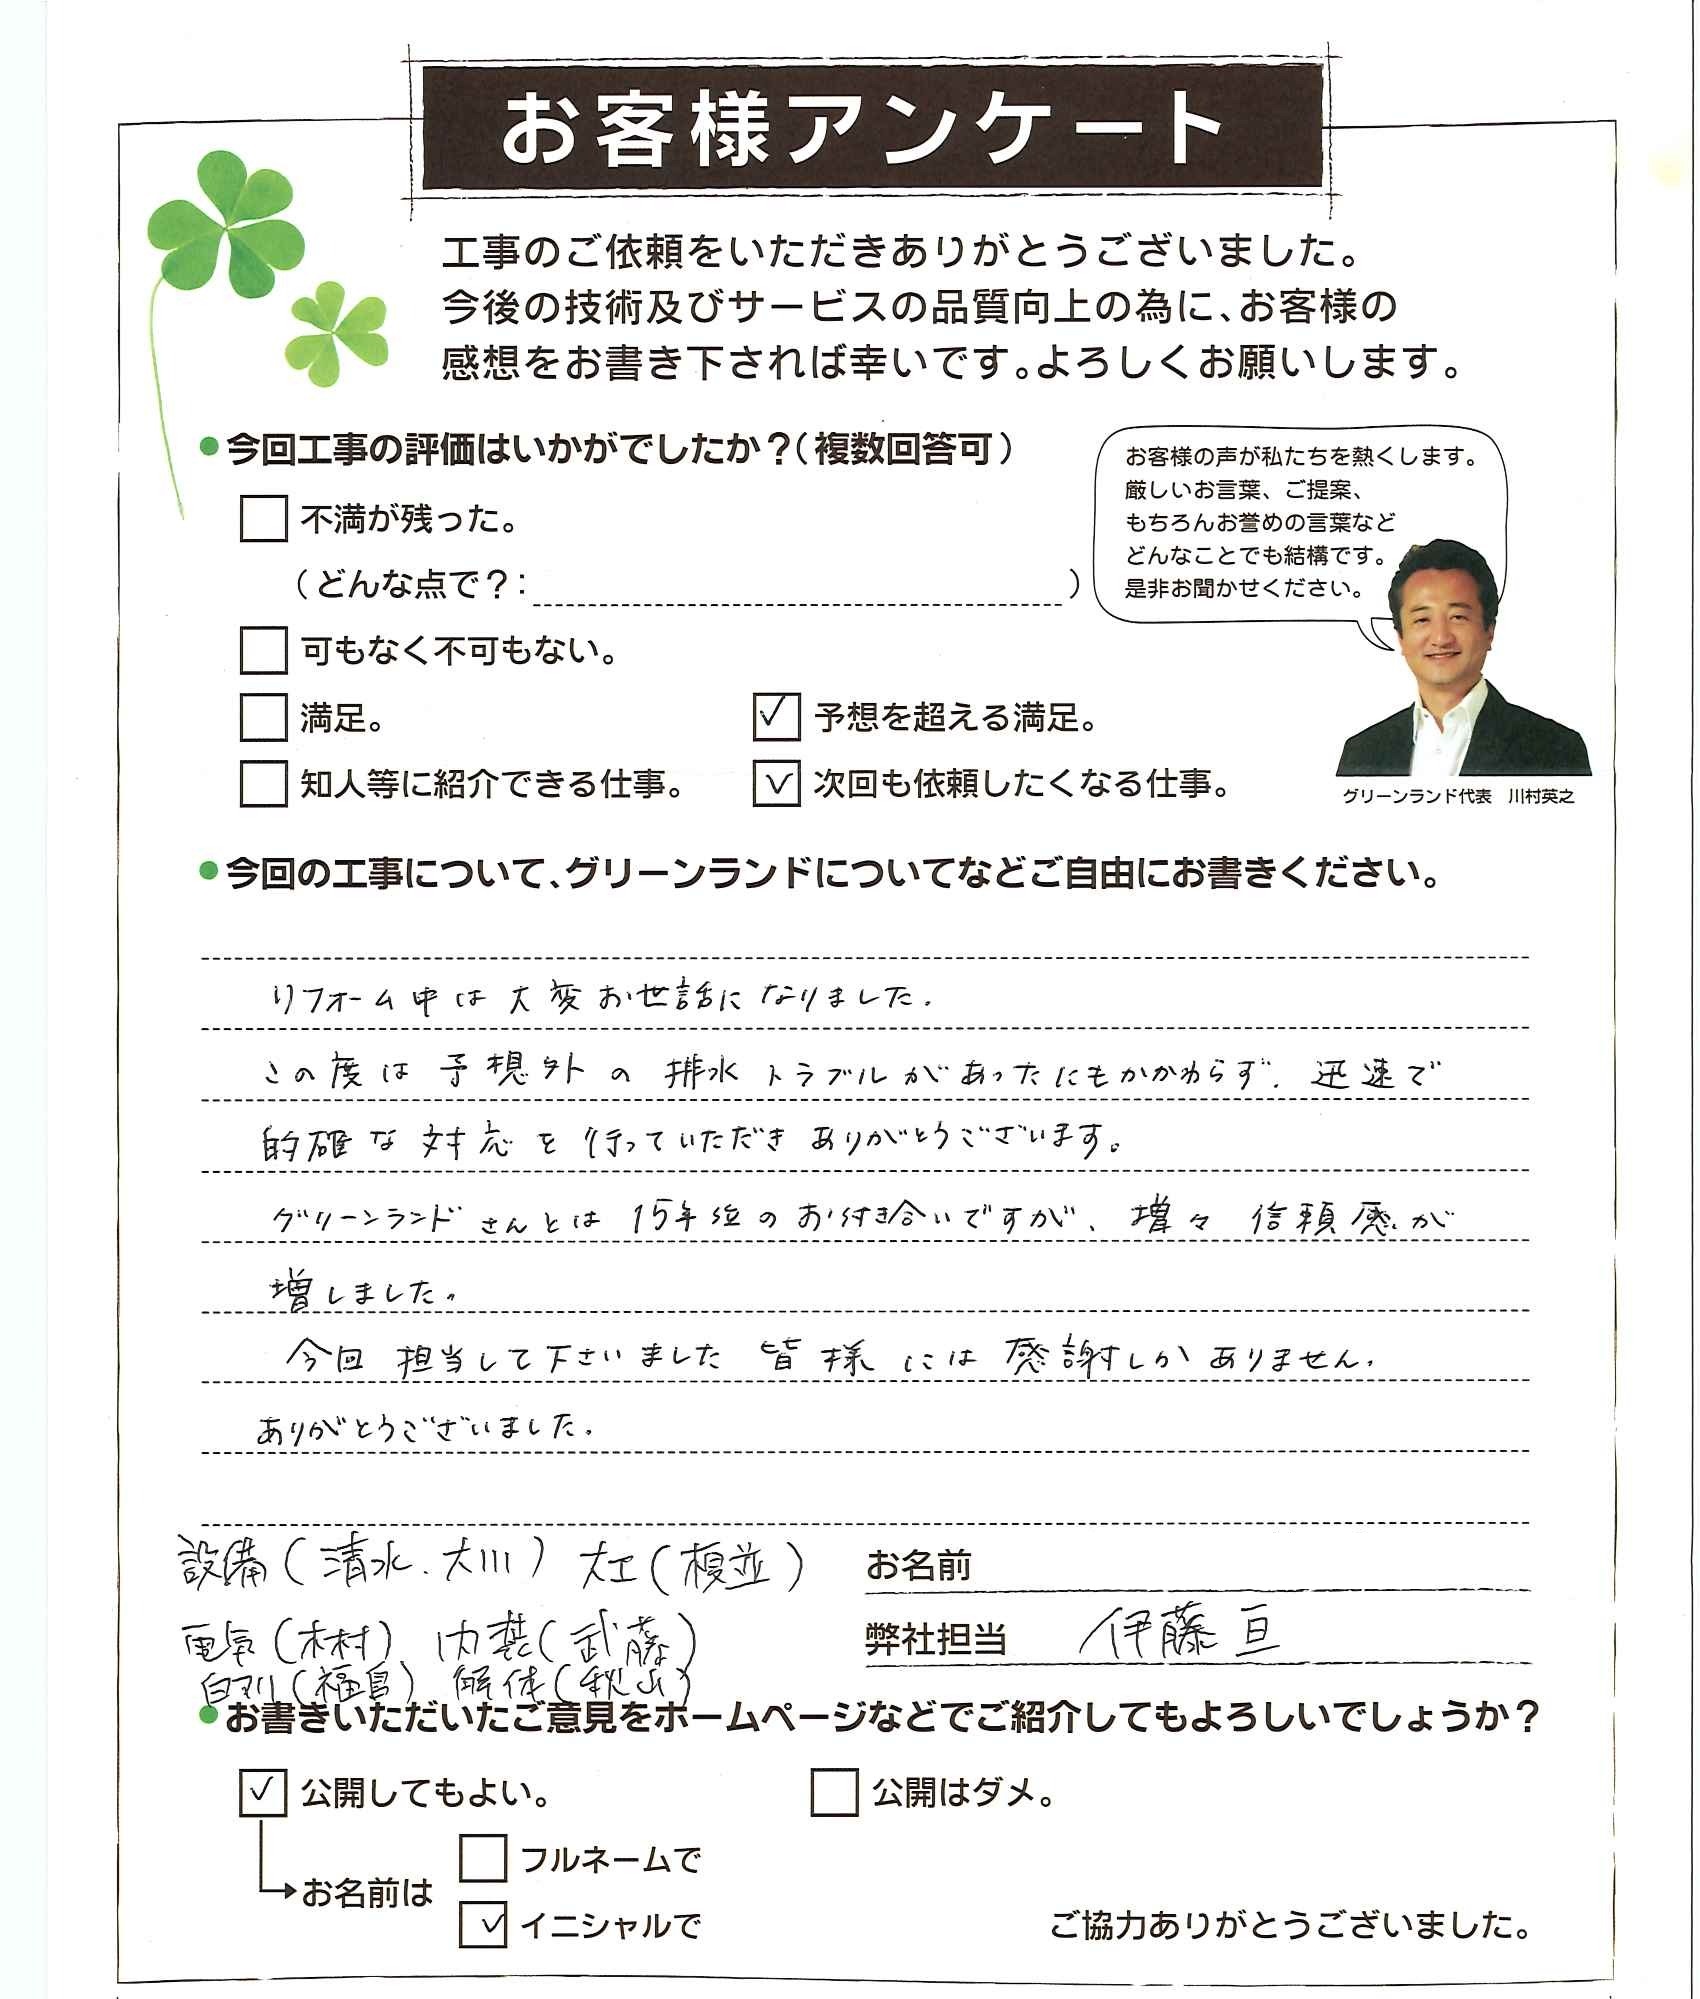 お客様アンケート
工事のご依頼をいただきありがとうございました。
今後の技術及びサービスの品質向上の為に、お客様の
感想をお書き下されば幸いです。よろしくお願いします。
●今回工事の評価はいかがでしたか？（複数回答可）
不満が残った。
（どんな点で？：　）
可もなく不可もない。
満足。
✓ 予想を超える満足。
知人等に紹介できる仕事。
✓ 次回も依頼したくなる仕事。
お客様の声が私たちを熱くします。
厳しいお言葉、ご提案、
もちろんお誉めの言葉など
どんなことでも結構です。
是非お聞かせください。
グリーンランド代表　川村英之
●今回の工事について、グリーンランドについてなどご自由にお書きください。
リフォーム中は大変お世話になりました.
この度は予想外の排水トラブルがあったにもかかわらず. 迅速で
的確な対応を行っていただきありがとうございます。
グリーンランドさんとは15年位のお付き合いですが、増々信頼感が
増しました。
今回担当して下さいました皆様には感謝しかありません.
ありがとうございました.
設備(清水.大川) 大工(榎並)
電気(木村) 内装(武藤)
白アリ(福島) 解体(秋山)
お名前
弊社担当 伊藤 亘
●お書きいただいたご意見をホームページなどでご紹介してもよろしいでしょうか？
✓ 公開してもよい。
公開はダメ。
お名前は
フルネームで
✓ イニシャルで
ご協力ありがとうございました。